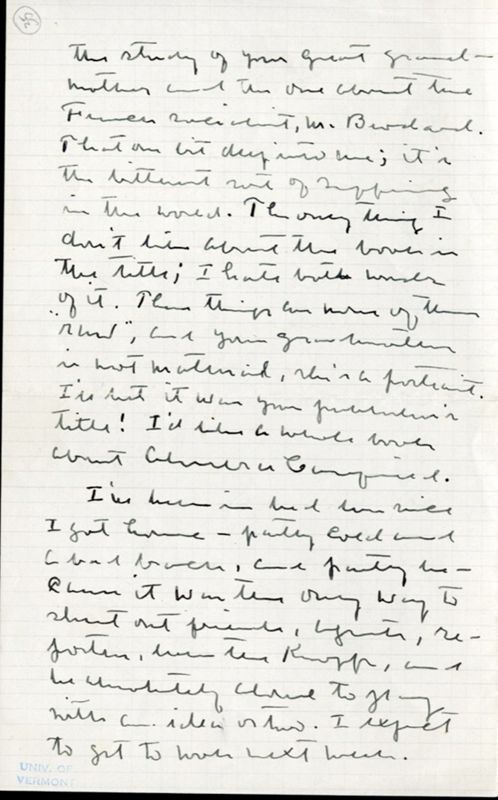 the study of your great grand-
mother and the one about the
French socialist, M.
That one bit deep into me; it's
the bitterest sort of suffering
in the world. The only thing I
don't like about the book is
the title; I hate both words
of it. These things are none of them
"raw", and your grandmother
is not material, she's a portrait.
I'll bet it was your publisher's
title! I'd like a whole book
about Almera Canfield.
I've been in bed ever since
I got home - partly cold and
a bad back, and partly be-
cause it was the only way to
shut out friends, agents, re-
porters, even the Knopfs, and
be absolutely alone to play
with an idea or two. I expect
to get to work next week.
UNIV. OF
VERMONT